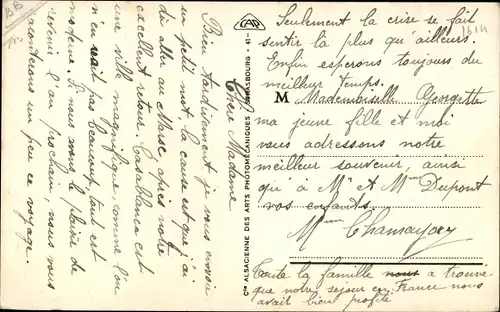 Chère Madame
Bien tardivement je vous envoie
un petit mot, la cause est que j'ai
dû aller au Maroc après notre
excellent retour. Casablanca est
une ville magnifique comme l'on
n'en voit pas beaucoup, tout est
moderne. Si nous avons le plaisir de
revenir l'an prochain, nous vous
raconterons un peu ce voyage.
Cie ALSACIENNE DES ARTS PHOTOMÉCANIQUES STRASBOURG - 41-
CAP
Seulement la crise se fait
sentir là plus qu'ailleurs.
Enfin esperons toujours du
meilleur temps.
M Mademoiselle Georgette
ma jeune fille et moi
vous adressons notre
meilleur souvenir, ainsi
qu'à Mr et Mme Dupont
vos enfants.
Mme
Toute la famille nous a trouve
que notre sejour en France nous
avait bien profité